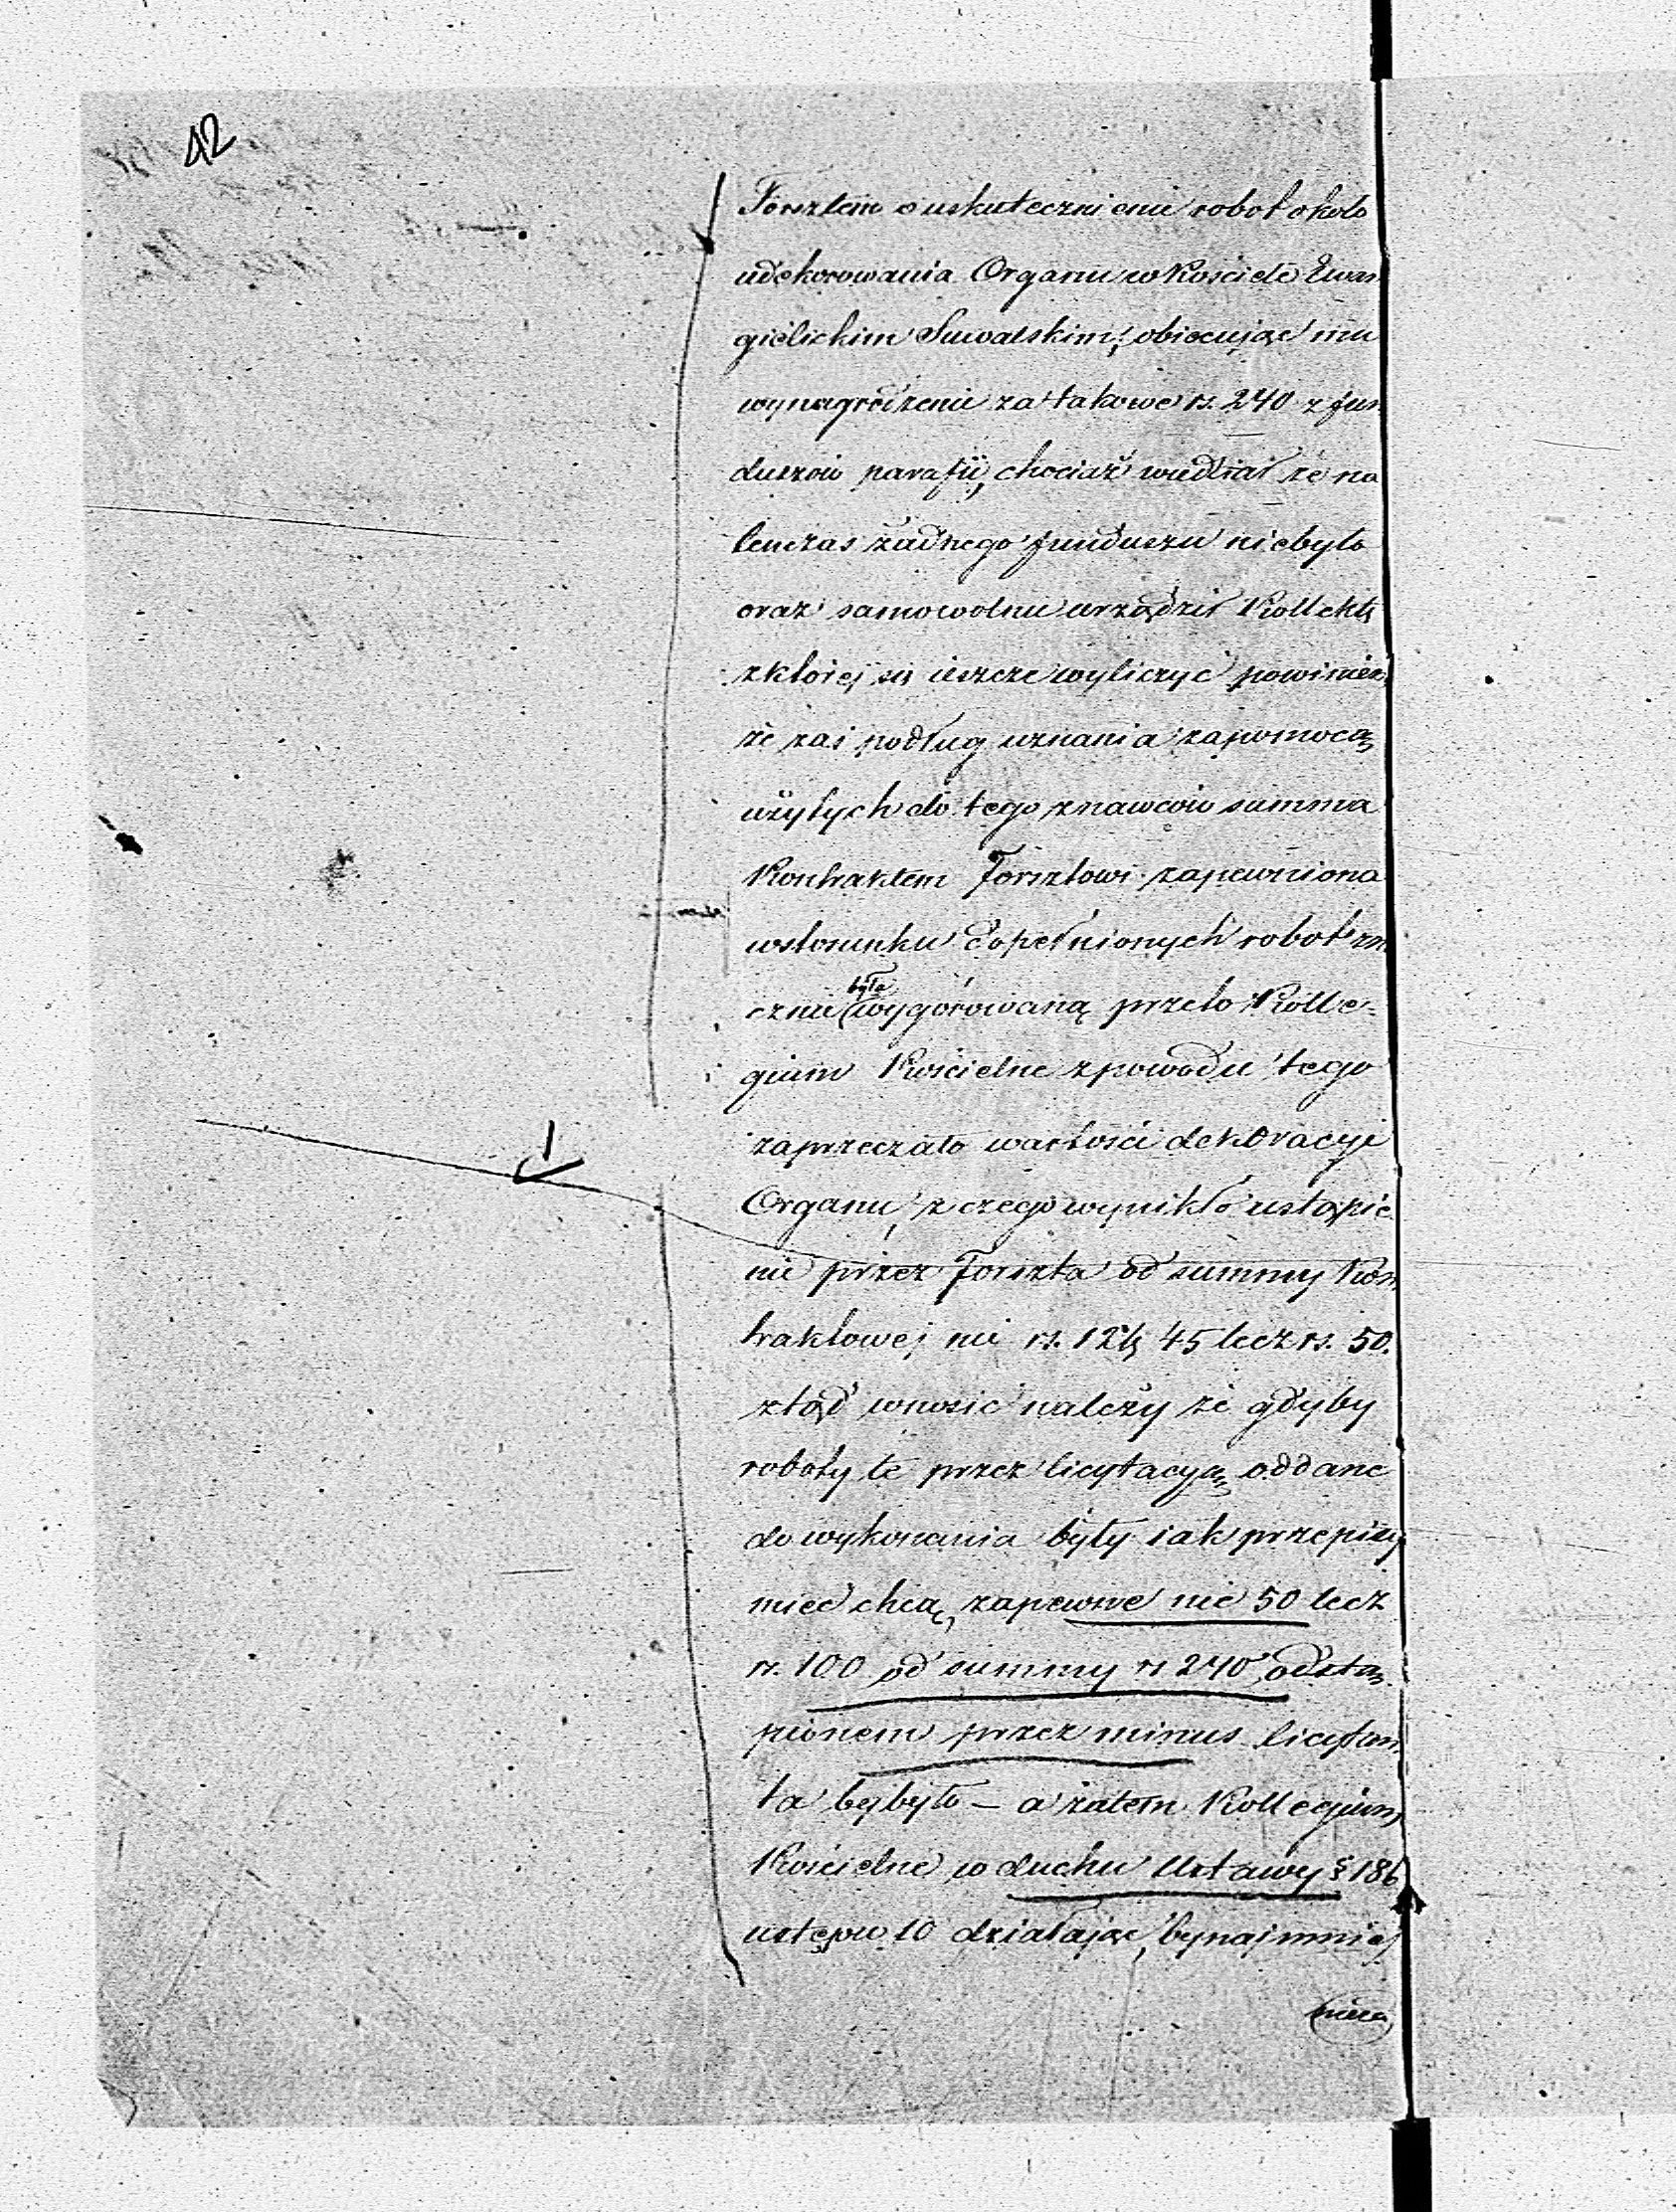 42
Forsztem o uskutecznienie robot około
udekorowania Organu w Kościele Ewan
gielickim Suwalskim, obiecując mu
wynagrodzenie za takowe rs. 240 z fun
duszów parafii, chociaż wiedział że na
tenczas żadnego funduszu niebyło
oraz samowolnie urządził Kollektę
z której się ieszcze wyliczyć powinien,
że zaś podług uznania zapomocą
użytych do tego znawców summa
Kontraktem Forsztowi zapewniona
wstosunku dopełnionych robot zna
cznie była wygórowaną przeto Kolle-
gium Kościelne zpowodu tego
zaprzeczało wartości dekoracyi
Organu, z czego wynikło ustąpie
nie przez Forszta od summy Kon
traktowej nie rs. 45 lecz rs. 50.
ztąd wnosić należy że gdyby
roboty te przez licytacyą oddane
do wykonania były iak przepisy
mieć chcą, zapewne nie 50 lecz
rs. 100 od summy rs 240 odstą
pionem przez minus licytan
ta byłoby — a zatem Kollegium
Kościelne w duchu Ustawy § 186
ustępu 10 działając, bynajmniej